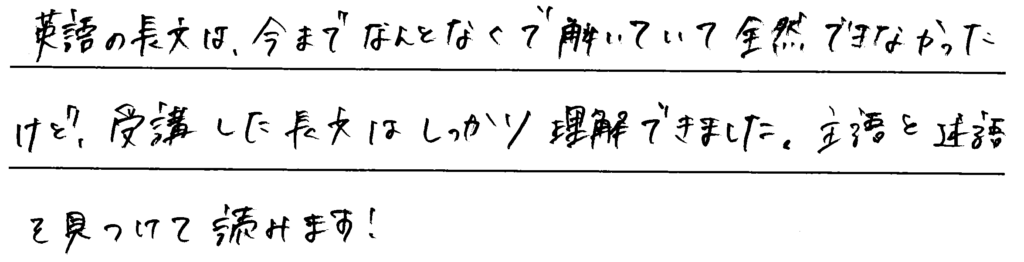 英語の長文は、今までなんとなくで解いていて全然できなかった
けど、受講した長文はしっかり理解できました。主語と述語
を見つけて読みます!